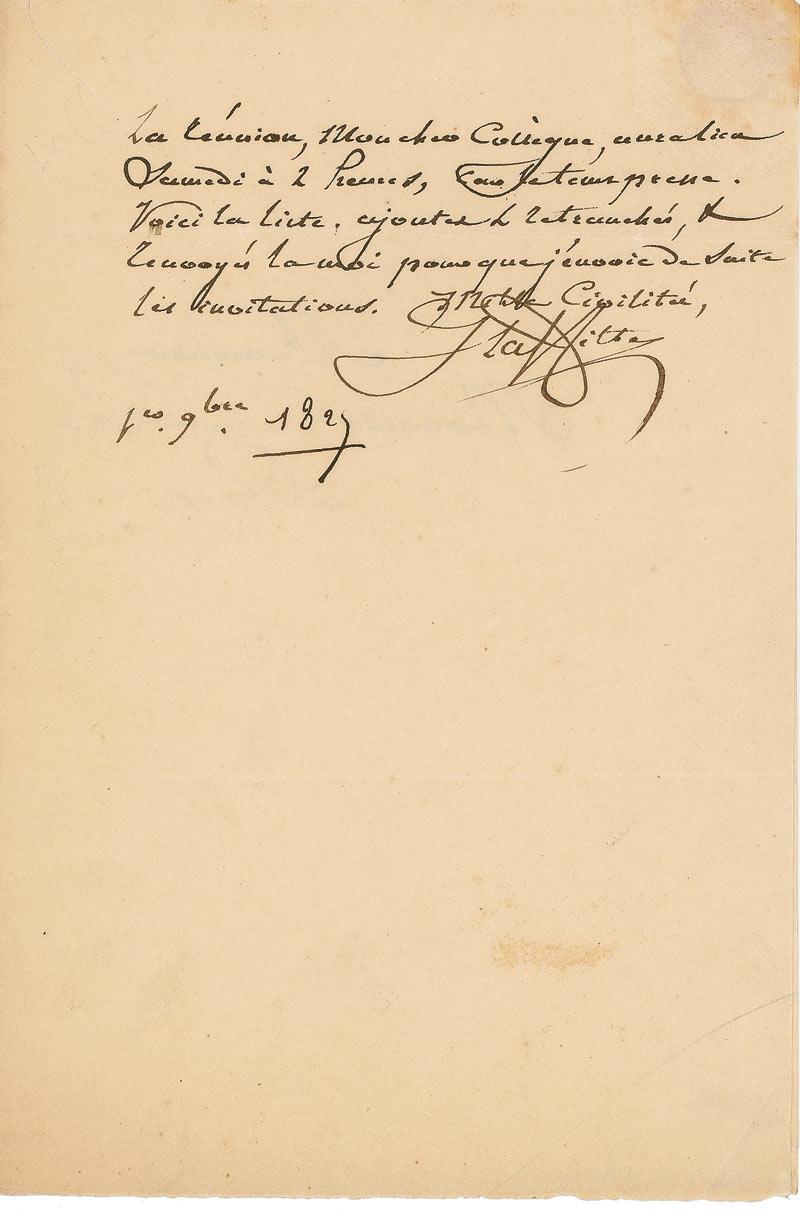 La réunion, Mon cher Collègue, aura lieu
Samedi à 2 heures, Car le tems presse.
Voici la liste. ajoutes & retranchés, &
renvoyés la moi pour que j'envoie de Suite
les invitations. Mille Civilités,
J Laffitte
1er. 9bre. 1827